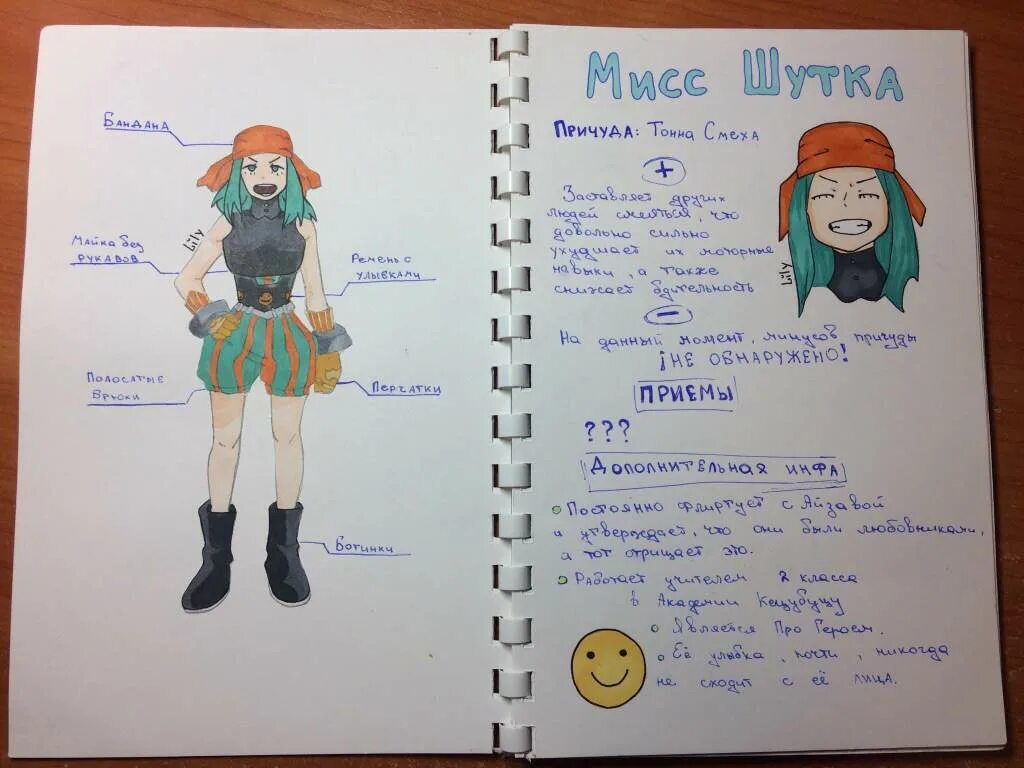 Бандана
Lily
Майка без
рукавов
Ремень с
улыбками
Полосатые
брюки
Перчатки
Ботинки
Мисс Шутка
Причуда: Тонна Смеха
+
Заставляет других
людей смеяться, что
довольно сильно
ухудшает их моторные
навыки, а также
снижает бдительность
Lily
–
На данный момент, минусов причуды
¡НЕ ОБНАРУЖЕНО!
ПРИЕМЫ
???
Дополнительная инфа
Постоянно флиртует с Айзавой
и утверждает, что они были любовниками,
а тот отрищает это.
Работает учителем 2 класса
в Академии Кецубуцу
Является Про Героем.
Её улыбка, почти, никогда
не сходит с её лица.